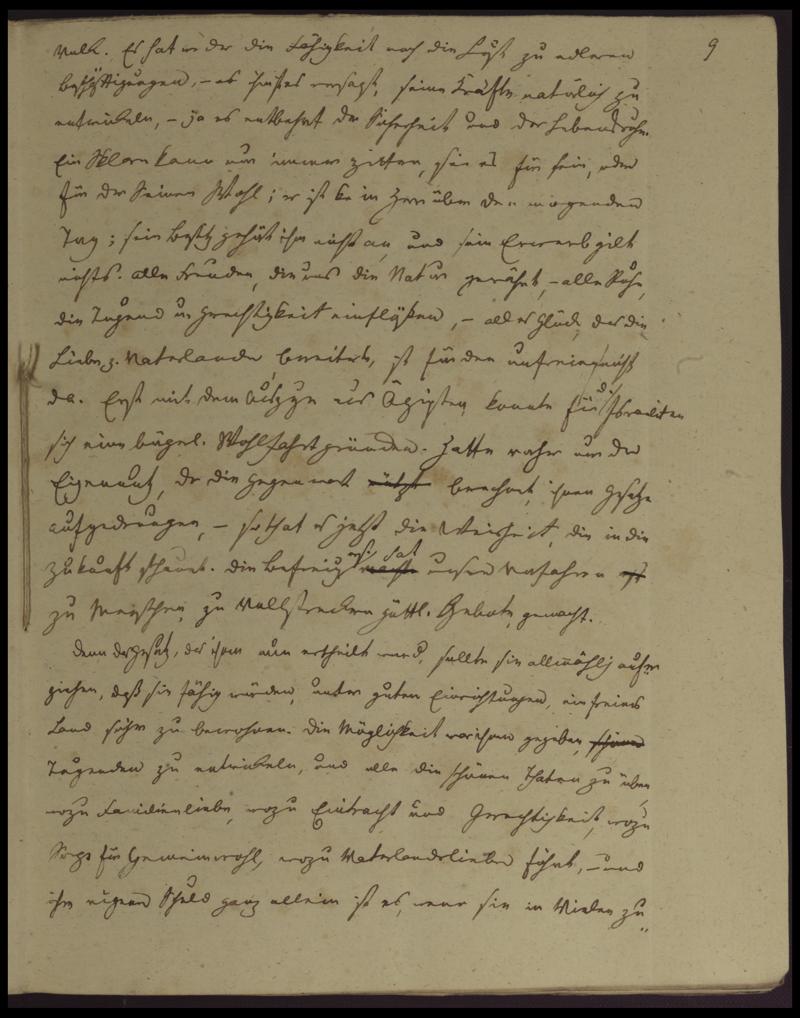 9
Volk. Es hat weder die Fähigkeit noch die Lust zu edleren
Beschäftigungen, – es ist ihm versagt, seine Kräfte natürlich zu
entwickeln, – ja es entbehrt der Sicherheit und der Lebensruhe.
Ein Sklave kann nur immer zittern, sei es für sein, oder
für der Seinen Wohl; er ist kein Herr über den morgenden
Tag; sein Besitz gehört ihm nicht an, und sein Erwerb gilt
nichts. Alle Freuden, die uns die Natur gewährt, – alle Ruhe,
die Tugend u. Gerechtigkeit einflößen, – alles Glück, das die
Liebe z. Vaterlande bereitet, ist für den unfreien nicht
da. Erst mit dem Auszuge aus Ägypten konnte für d. Israeliten
sich eine bürgerl. Wohlfahrt gründen. Hatte vorher nur der
Eigennutz, der die Gegenwart berechnet, ihnen Gesetze
aufgedrungen, – so that es jetzt die Weisheit, die in die
Zukunft schaut. Die Befreiung erst hat unsere Vorfahren
zu Menschen, zu Vollstreckern göttl. Gebote gemacht.
Denn das Gesetz, das ihnen nun ertheilt ward, sollte sie allmählig
ziehen, daß sie fähig würden, unter guten Einrichtungen, ein freies
Land sicher zu bewohnen. Die Möglichkeit war ihnen gegeben,
Tugenden zu entwickeln, und alle die schönen Thaten zu üben,
wozu Familienliebe, wozu Eintracht und Gerechtigkeit, wozu
Sorge für Gemeinwohl, wozu Vaterlandsliebe führt, – und
ihre eigene Schuld ganz allein ist es, wenn sie in Vielem zu